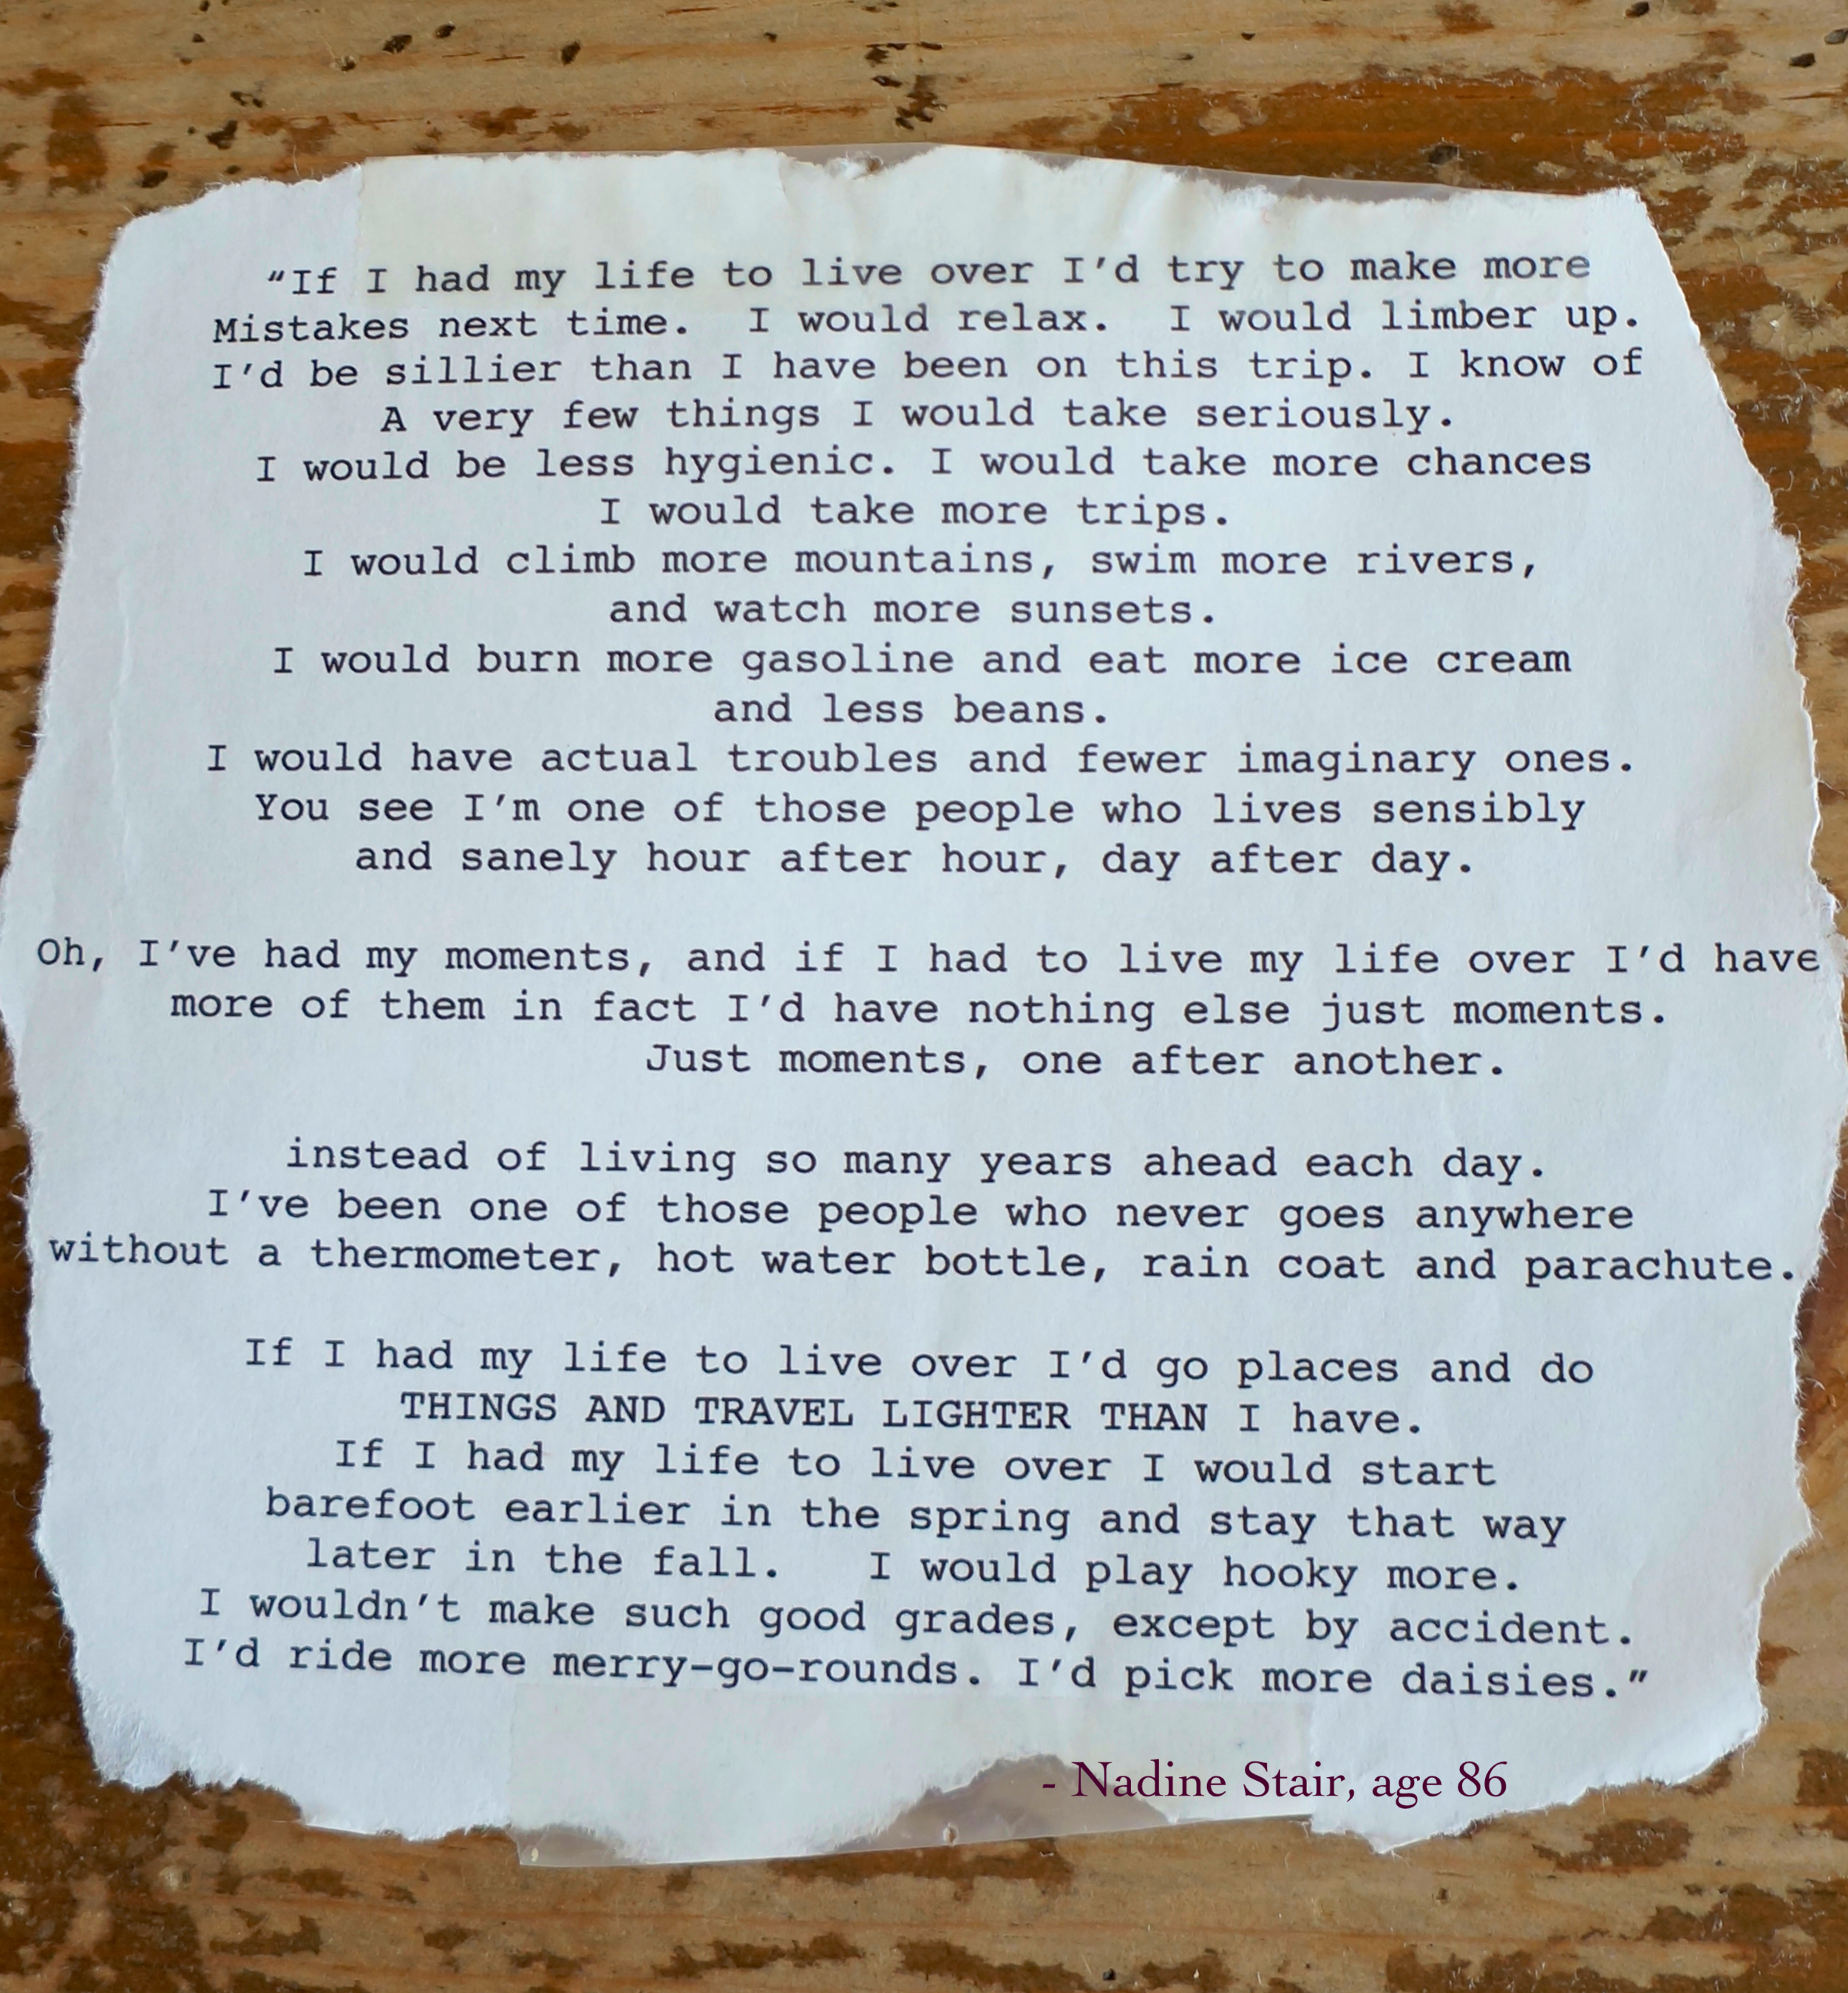 “If I had my life to live over I’d try to make more
Mistakes next time.  I would relax.  I would limber up.
I’d be sillier than I have been on this trip. I know of
A very few things I would take seriously.
I would be less hygienic. I would take more chances
I would take more trips.
I would climb more mountains, swim more rivers,
and watch more sunsets.
I would burn more gasoline and eat more ice cream
and less beans.
I would have actual troubles and fewer imaginary ones.
You see I’m one of those people who lives sensibly
and sanely hour after hour, day after day.
Oh, I’ve had my moments, and if I had to live my life over I’d have
more of them in fact I’d have nothing else just moments.
Just moments, one after another.
instead of living so many years ahead each day.
I’ve been one of those people who never goes anywhere
without a thermometer, hot water bottle, rain coat and parachute.
If I had my life to live over I’d go places and do
THINGS AND TRAVEL LIGHTER THAN I have.
If I had my life to live over I would start
barefoot earlier in the spring and stay that way
later in the fall.   I would play hooky more.
I wouldn’t make such good grades, except by accident.
I’d ride more merry-go-rounds. I’d pick more daisies.”
- Nadine Stair, age 86